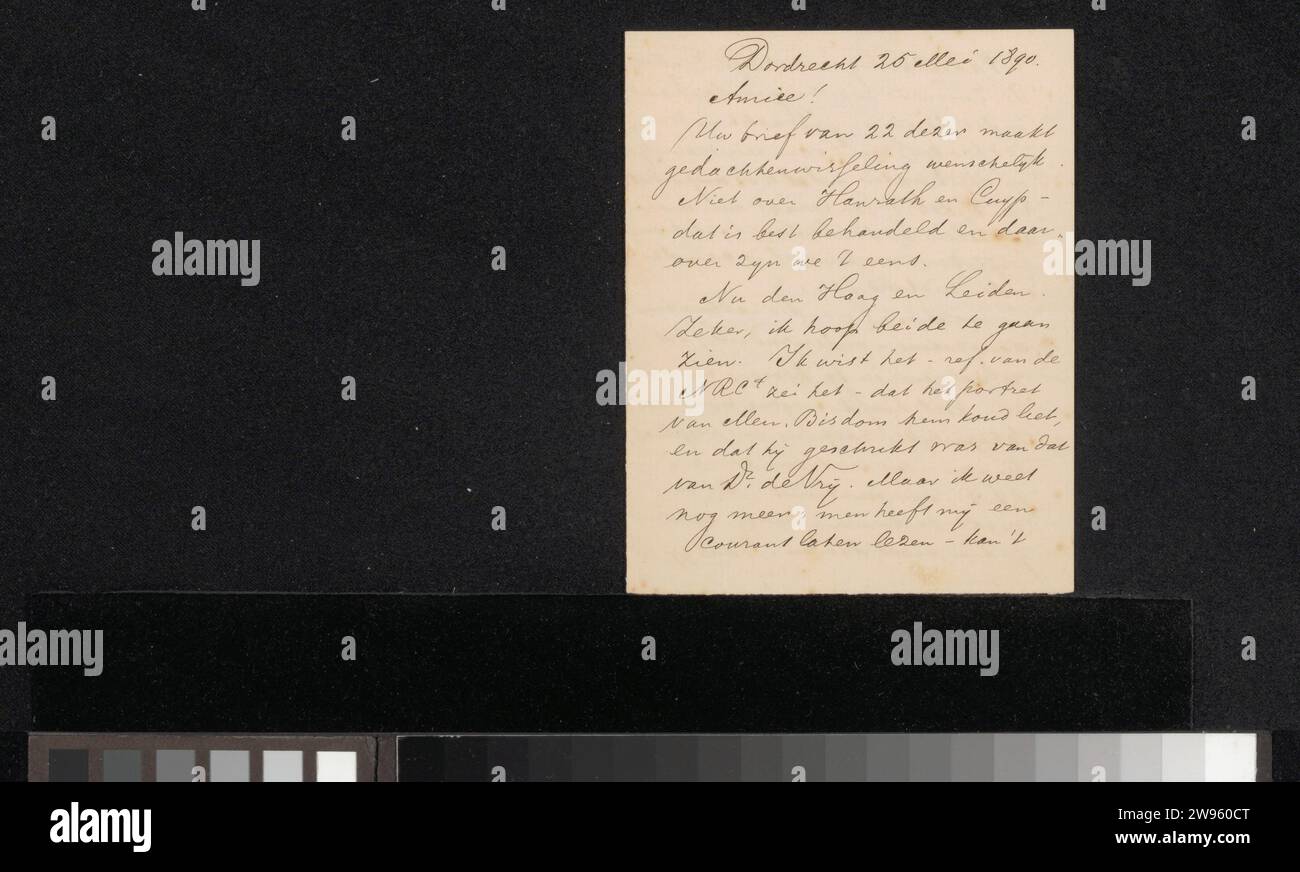 Dordrecht 25 Mei 1890.
Amice!
Uw brief van 22 dezer maakt
gedachtenwisseling wenschelyk.
Niet over Hanrath en Cuyp -
dat is best behandeld en daar-
over zyn we 't eens.
Nu den Haag en Leiden.
Zeker, ik hoop beide te gaan
zien. Ik wist het - ref. van de
NRCt zei het - dat het portret
van Mev. Bisdom hem koud liet,
en dat hij geschrikt was van dat
van Dr. de Vrij. Maar ik weet
nog meer, men heeft mij een
courant laten lezen - kan 't
alamy
alamy
alamy
alamy
alamy
alamy
Image ID: 2W960CT
www.alamy.com